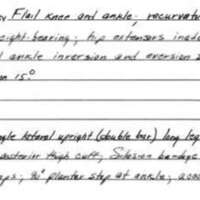 Flail knee and ankle; recurvatu
eight-bearing; hip extensors inade
ankle inversion and eversion
n 15°
ngle lateral upright (double bar) long leg
osterior thigh cuff; Silesian bandage
ps; 90° plantar stop at ankle;